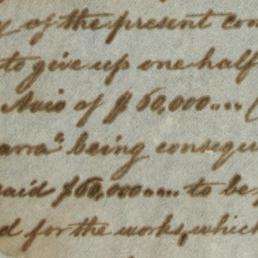 y of the present con
to give up one half
Avio of $60,000....(
arra" being consequ
paid $60,000.... to be p
d for the works, which